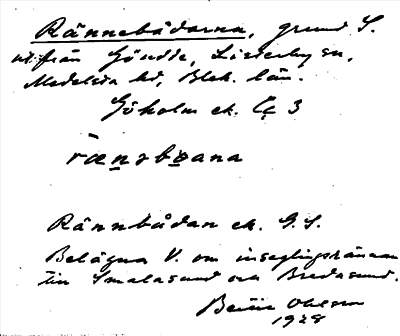 Rännebådarna, grund S.
ut från Göudde, Listerby sn,
Medelsta hd, Blek. län.
Göholm ek. C 3
rænəboana
Rännbådan ek. G.S.
Belägna V. om inseglingsrännan
till Smalasund och Bredasund.
Ohlson
1928